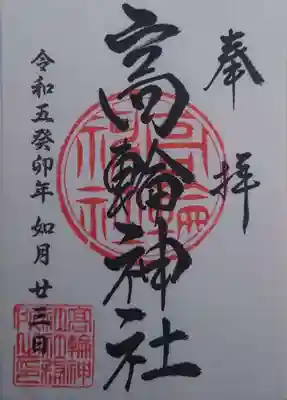 奉拝
高輪神社
令和五癸卯年如月廿三日
高輪神社